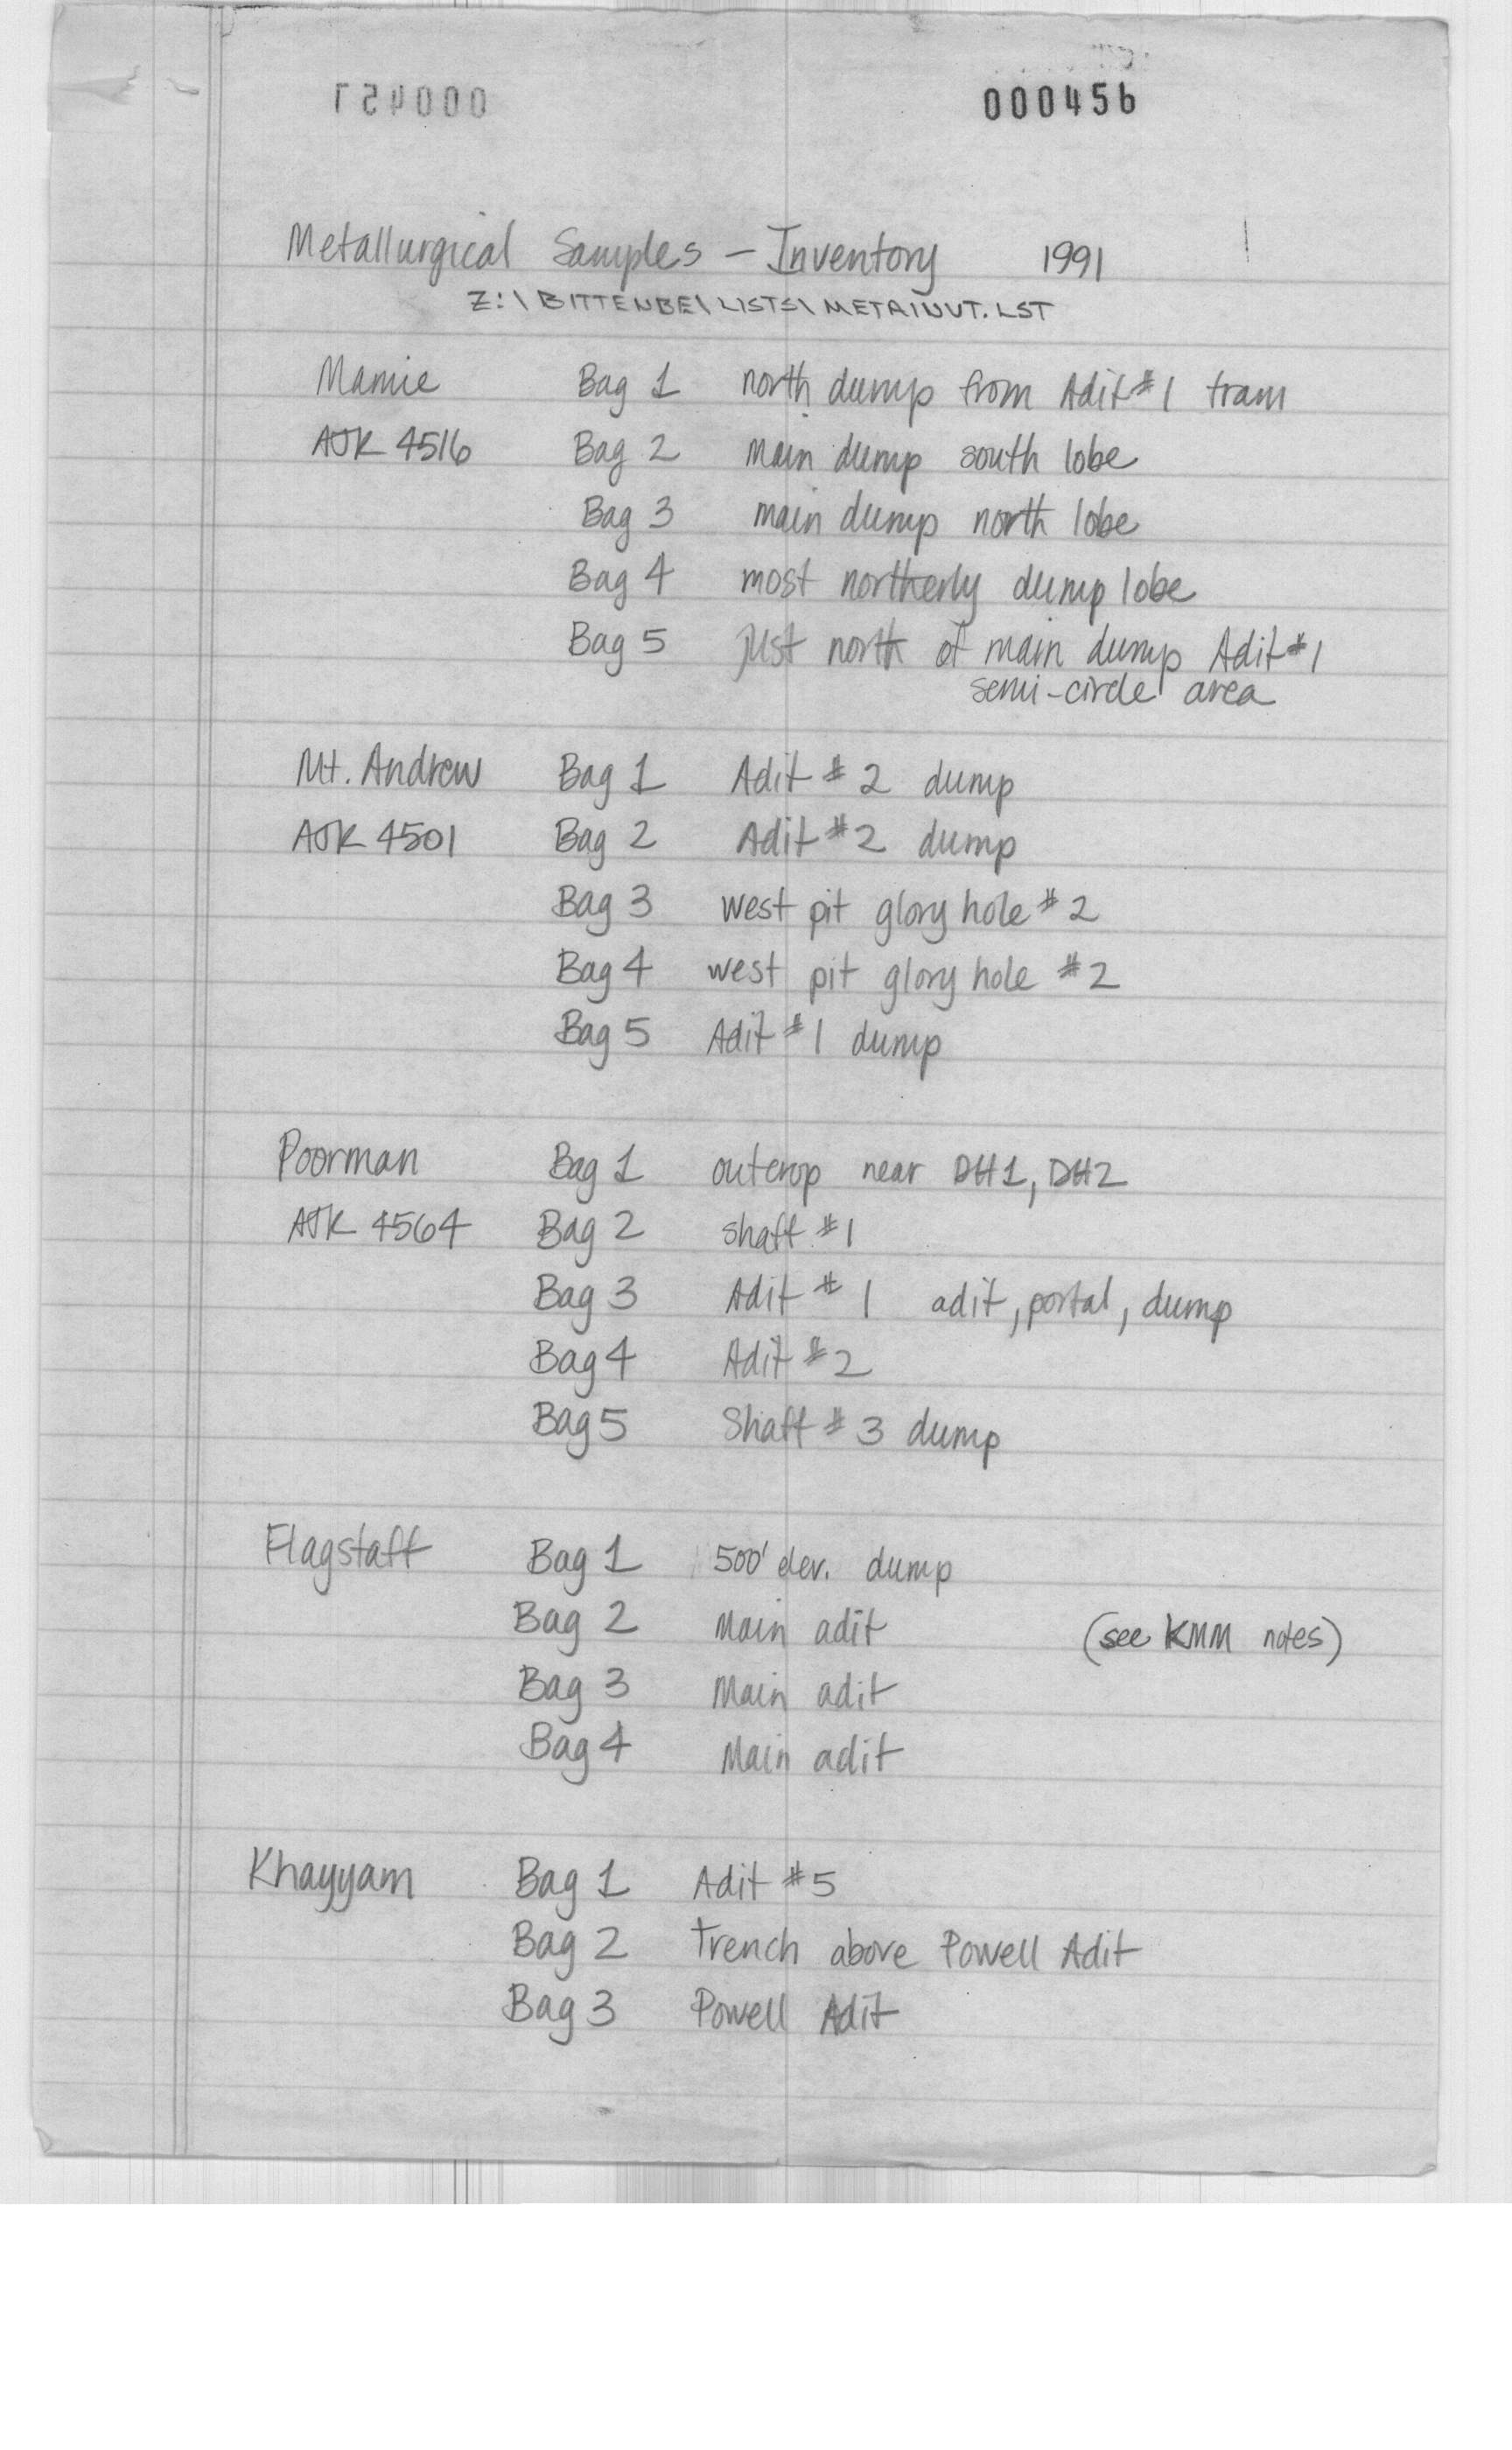 000457 000456
Metallurgical Samples - Inventory 1991 1
Z:\BITTENBE\LISTS\METAINVT.LST
Mamie Bag 1 north dump from Adit #1 tram
AJK 4516 Bag 2 main dump south lobe
Bag 3 main dump north lobe
Bag 4 most northerly dump lobe
Bag 5 just north of main dump Adit #1
semi-circle area
Mt. Andrew Bag 1 Adit # 2 dump
AJK 4501 Bag 2 Adit #2 dump
Bag 3 west pit glory hole #2
Bag 4 west pit glory hole #2
Bag 5 Adit #1 dump
Poorman Bag 1 outcrop near DH1, DH2
AJK 4564 Bag 2 shaft #1
Bag 3 Adit # 1 adit, portal, dump
Bag 4 Adit #2
Bag 5 Shaft # 3 dump
Flagstaff Bag 1 500' elev. dump
Bag 2 Main adit (see KMM notes)
Bag 3 Main adit
Bag 4 Main adit
Khayyam Bag 1 Adit #5
Bag 2 Trench above Powell Adit
Bag 3 Powell Adit